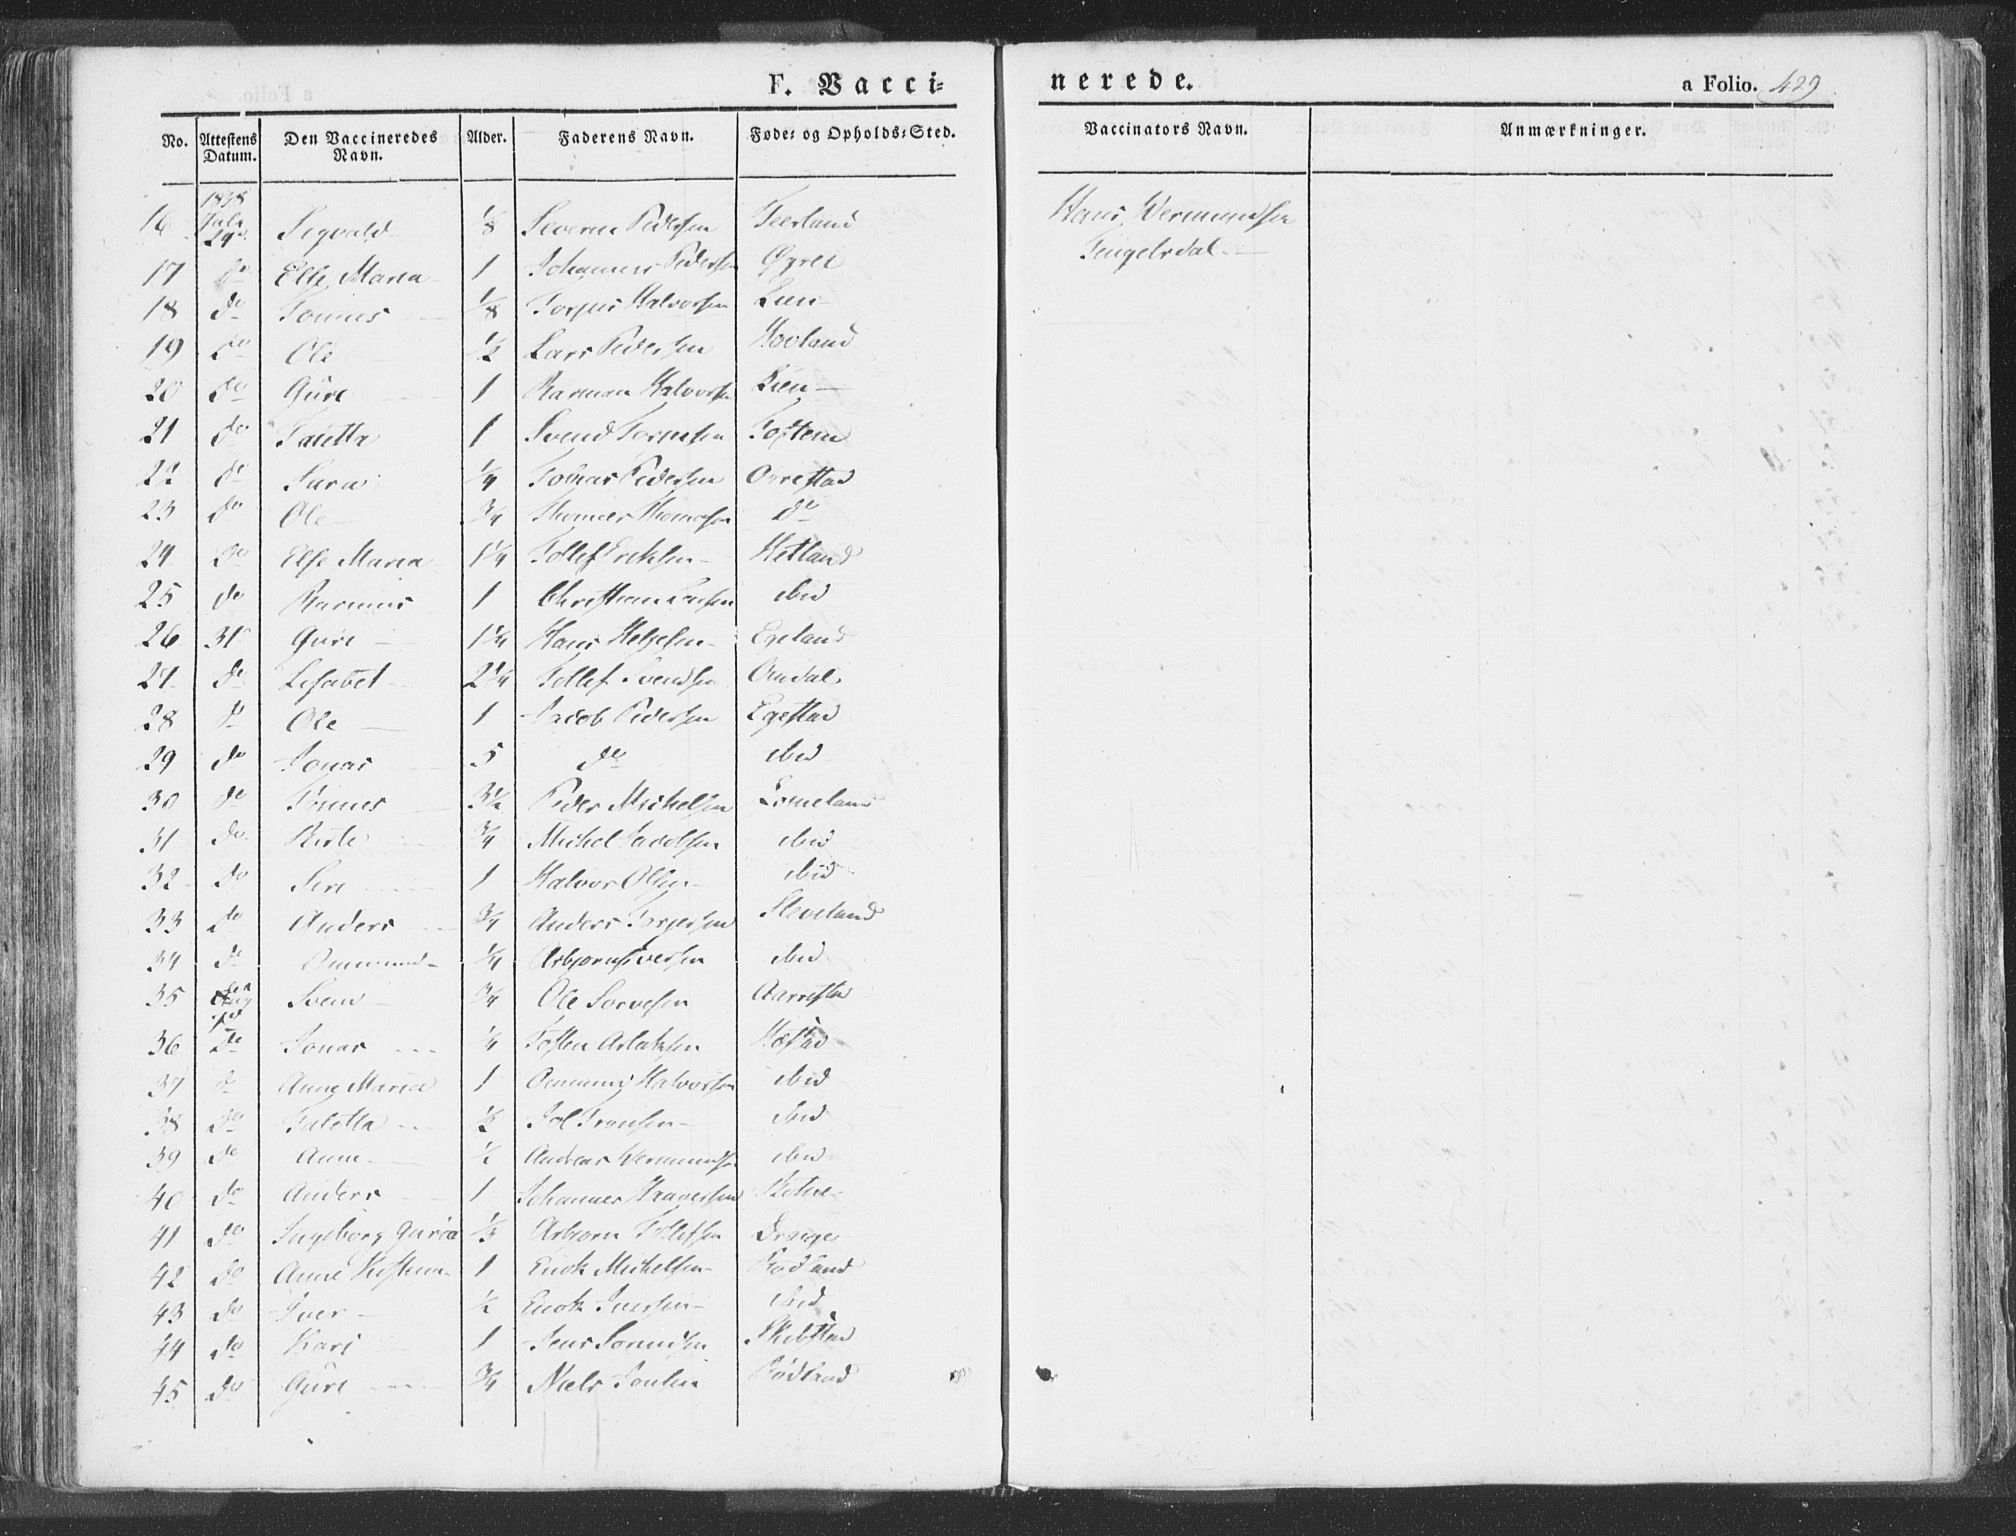 F. Vacci=
nerede.
a Folio. 429
No. Attestens Datum. Den Vaccineredes Navn. Alder. Faderens Navn. Føde= og Opholds=Sted. Vaccinators Navn. Anmærkninger.
1838
16 July 29 Sigvald 1/8 Severin Pedersen Hans Wermundsen
Fengelsdal
17 do Elle Maria 1 Johannes Pedersen
18 do Tønnes 1/8 Torjus Halvorsen Lien
19 do Ole 1/2 Lars Pedersen Hovland
20 do Gure 1 Rasmus Halvorsen Lien
21 do Taletta 1 Svend
22 do Sara 1/4 Tobias Pedersen
23 do Ole 3/4 Thomas Thomasen do
24 do Else Maria 1 1/4 Tollef Eriksen Hetland
25 do Rasmus 1 Christian ibid
26 31 Gure 1 1/4 Hans Helgesen Egeland
27 do Lisabet 2 1/4 Tollef Svendsen Omdal
28 do Ole 1 Jacob Pedersen Egestad
29 do Jonas 5 do ibid
30 do Tønnes 3 1/2 Peder Michelsen Lomeland
31 do Birte 3/4 Michel Jacobsen ibid
32 do Siri 1 Halvor Olsen ibid
33 do Anders 3/4 Anders Torgersen Sleveland
34 do Ommund 1/4 Asbjørn Iversen ibid
35 Aug Sven 3/4 Ole
36 do Jonas 1/4 Tosten Aslaksen
37 do Anne Maria 1 Ommund Halvorsen ibid
38 do Taletta 1/2 ibid
39 do Anne 1/2 Andreas Wermundsen ibid
40 do Anders 1 Johannes
41 do Ingeborg Guria 1/3 Asbjørn Tollefsen Drange
42 do Anne 1 Enok Michelsen Rødland
43 do Iver 1/2 Enok Iversen ibid
44 do Kari 1 Jens Skibstad
45 do Gure 3/4 Niels Rødland